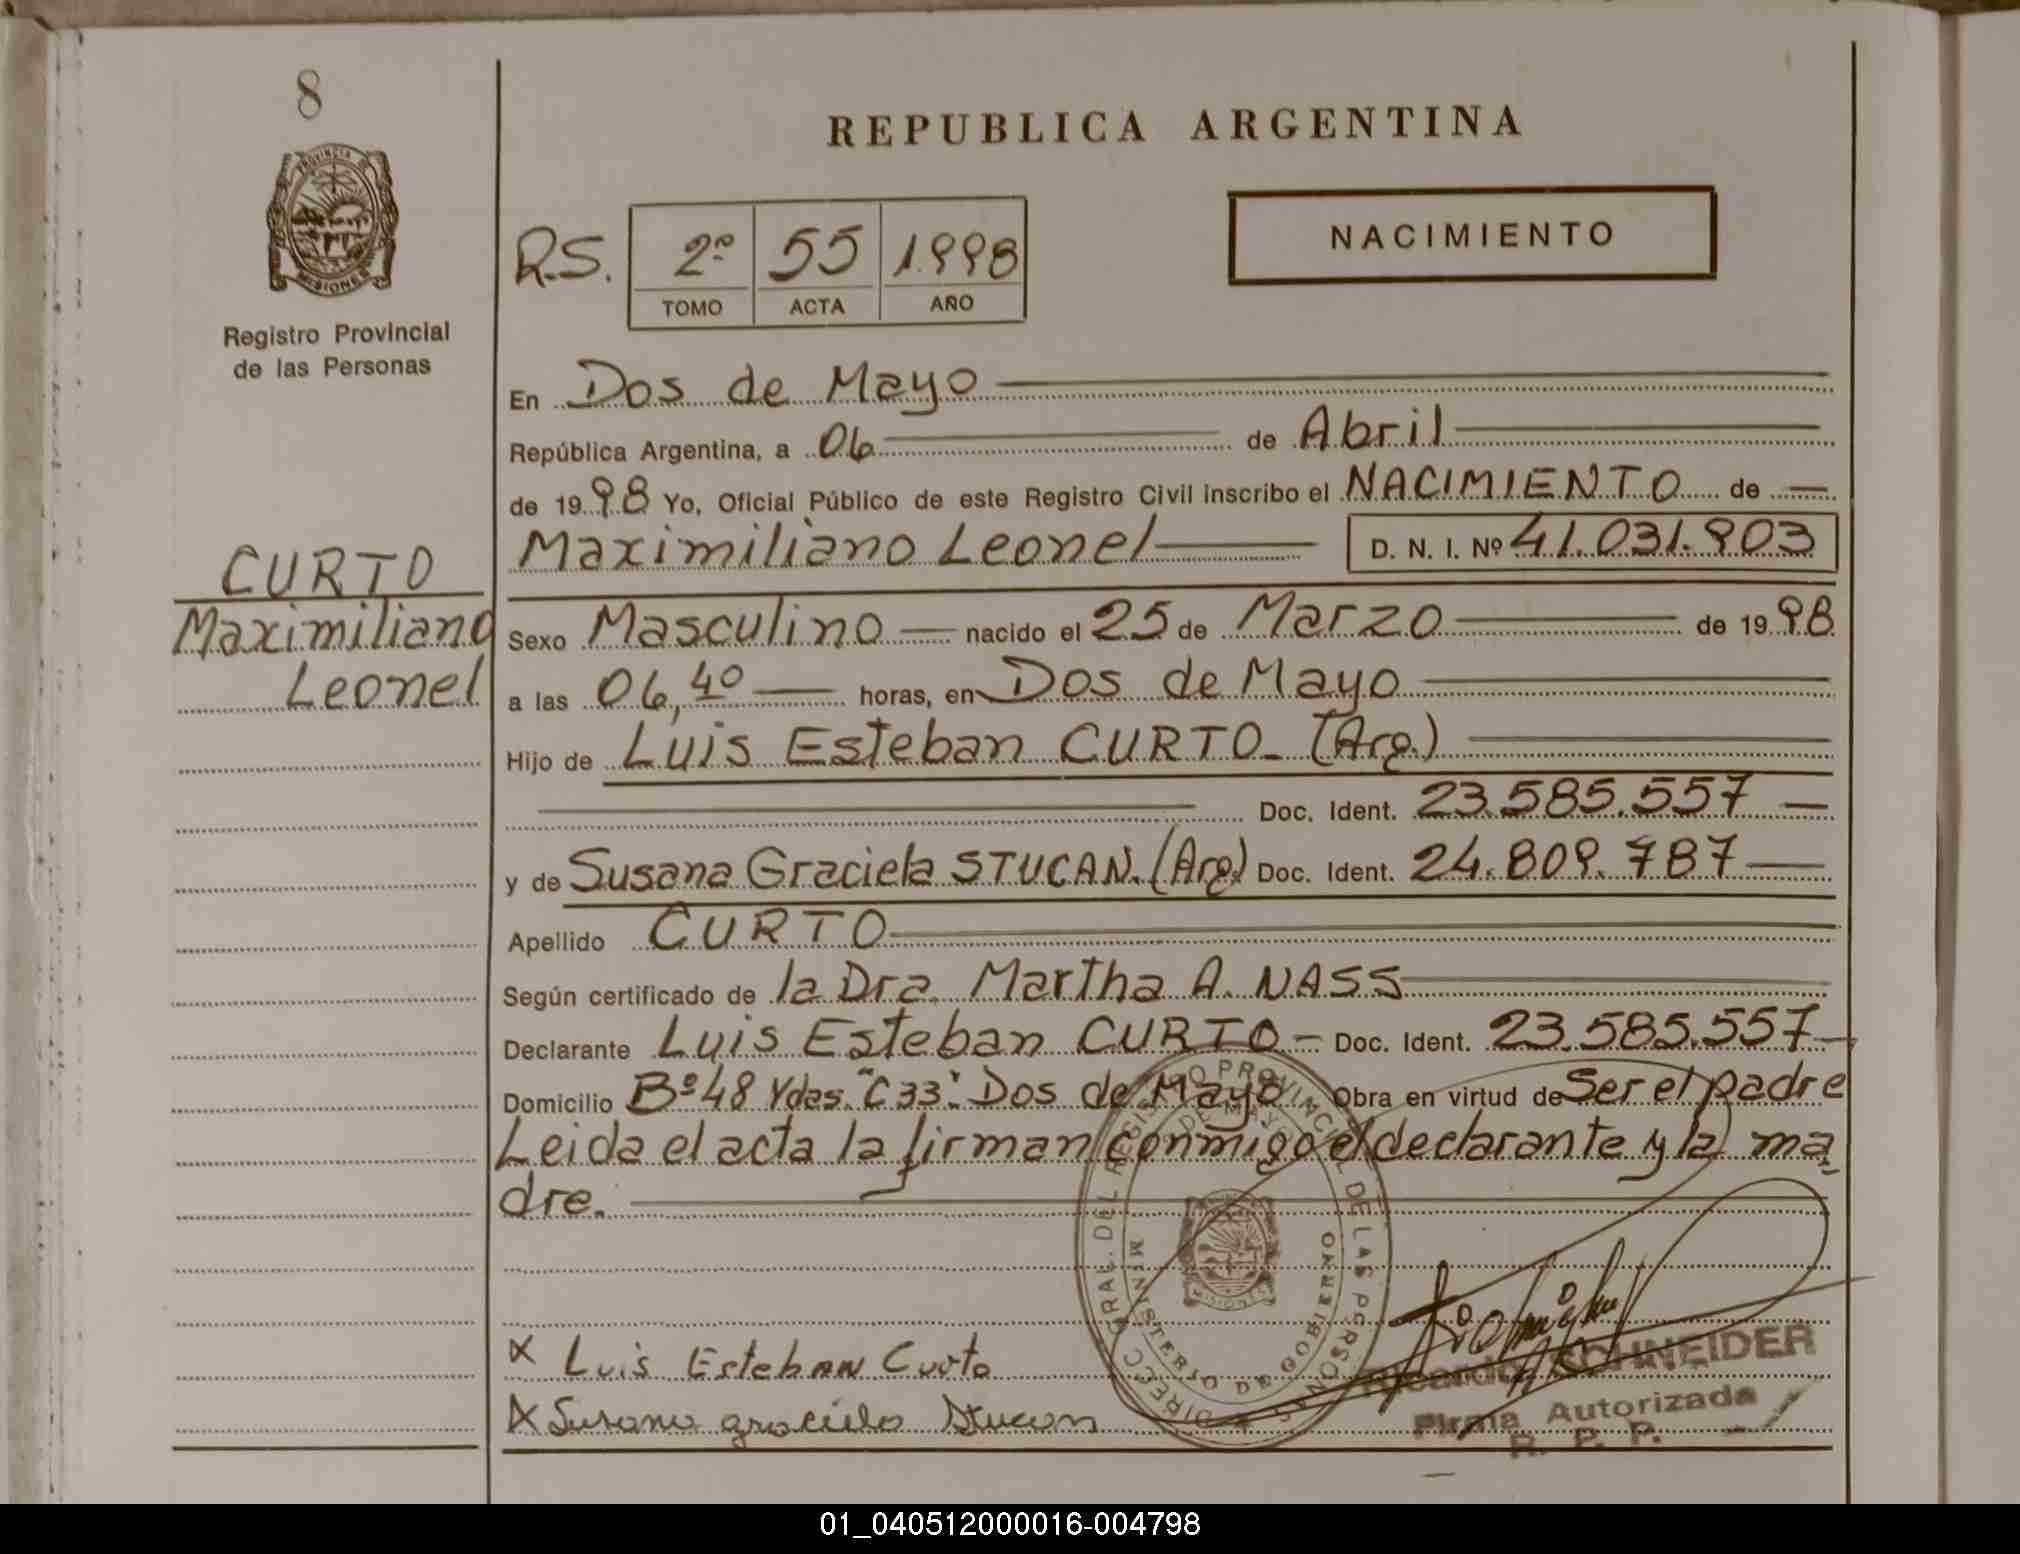 8
PROVINCIA DE
MISIONES
Registro Provincial
de las Personas
CURTO
Maximiliano
Leonel
REPUBLICA ARGENTINA
R.S. 2º 55 1.998
TOMO ACTA AÑO
NACIMIENTO
En Dos de Mayo
República Argentina, a 06 de Abril
de 1998 Yo, Oficial Público de este Registro Civil inscribo el NACIMIENTO de
Maximiliano Leonel D. N. I. Nº 41.031.903
Sexo Masculino nacido el 25 de Marzo de 1998
a las 06,40 horas, en Dos de Mayo
Hijo de Luis Esteban CURTO - (Arg.)
Doc. Ident. 23.585.557
y de Susana Graciela STUCAN. (Arg.) Doc. Ident. 24.809.787
Apellido CURTO
Según certificado de la Dra. Martha A. NASS
Declarante Luis Esteban CURTO - Doc. Ident. 23.585.557
Domicilio Bº 48 Vdas. "C 33". Dos de Mayo Obra en virtud de Ser el padre
Leida el acta la firman conmigo el declarante y la ma-
dre.
DIRECC. GRAL. DEL REGISTRO PROVINCIAL DE LAS PERSONAS
DE MAYO
MINISTERIO DE GOBIERNO
MISIONES
x Luis Esteban Curto
x Susana graciela Stucan
Ricardo SCHNEIDER
Firma Autorizada
R. P. P.
01_040512000016-004798